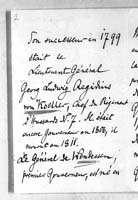 2
Son successeur en 1799
était le
Lieutenant Général
Georg Ludwig Aegidius
von Koehler, Chef du Régiment
d'Hussards N. 7. Il était
encore Gouverneur en 1806, il
mourut en 1811.
Le Général de
premier Gouverneur, est né en